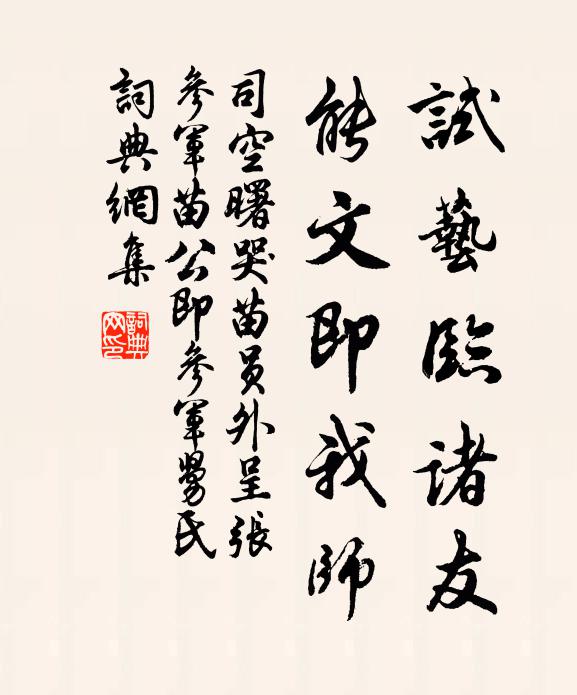 試藝臨諸友
能文即我師
司空曙哭苗員外呈張
參軍苗公即參軍舅氏
詞典網集
詞典
网印